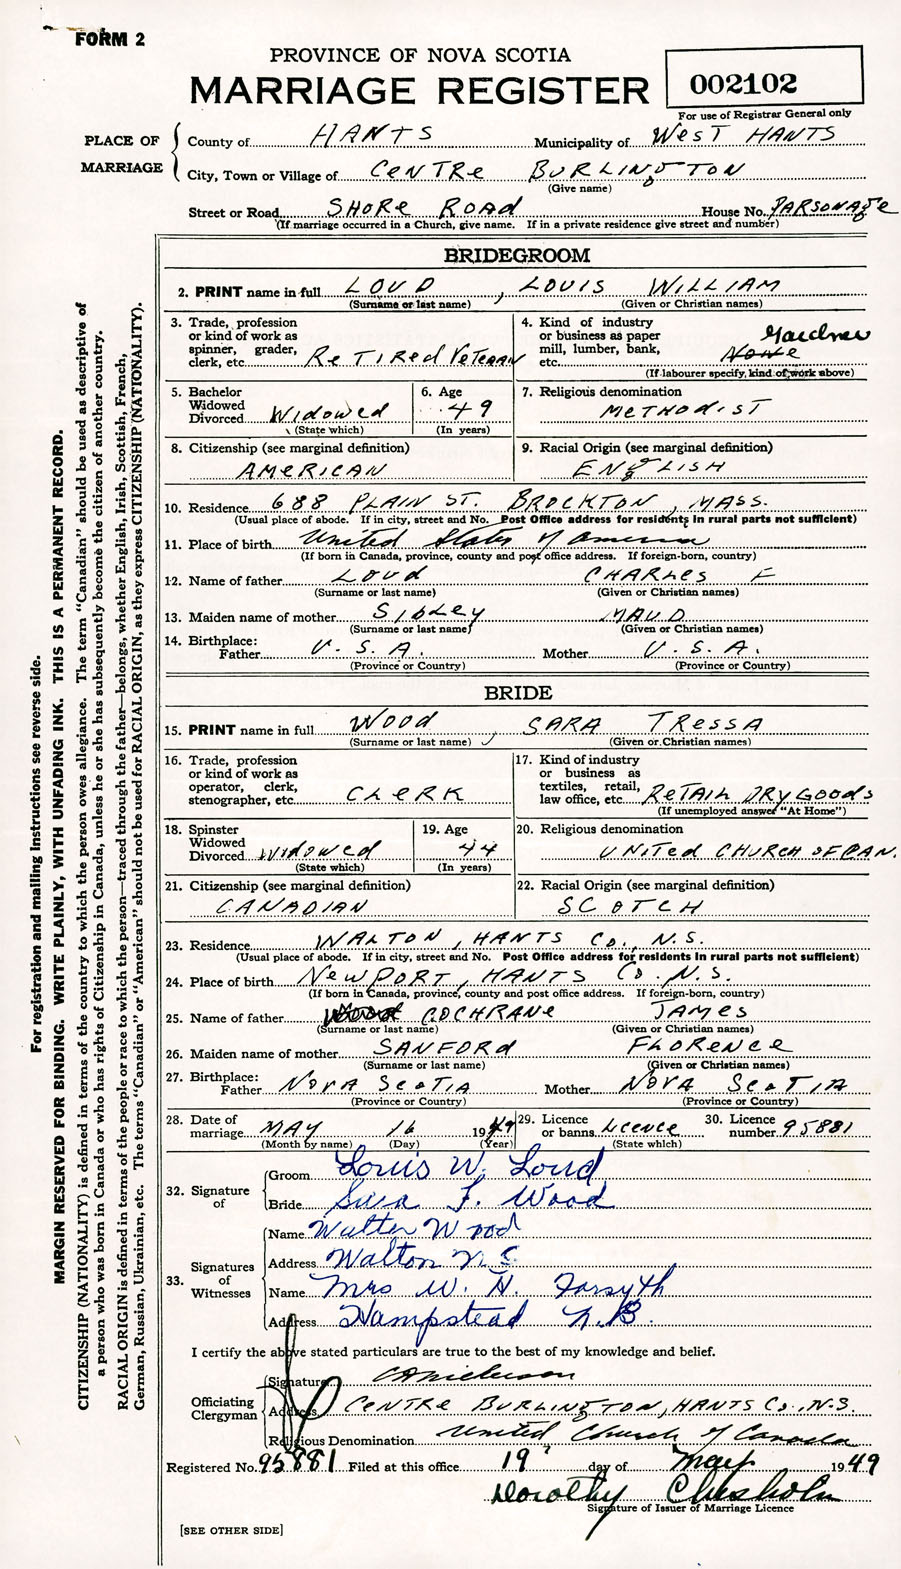 FORM 2
PROVINCE OF NOVA SCOTIA
MARRIAGE REGISTER
002102
For use of Registrar General only
PLACE OF MARRIAGE
County of HANTS Municipality of WEST HANTS
City, Town or Village of CENTRE BURLINGTON
(Give name)
Street or Road SHORE ROAD House No. PARSONAGE
(If marriage occurred in a Church, give name. If in a private residence give street and number)
BRIDEGROOM
2. PRINT name in full LOUD, LOUIS WILLIAM
(Surname or last name) (Given or Christian names)
3. Trade, profession or kind of work as spinner, grader, clerk, etc. RETIRED VETERAN
4. Kind of industry or business as paper mill, lumber, bank, etc. Gardner None
(If labourer specify, kind of work above)
5. Bachelor Widowed Divorced WIDOWED
(State which)
6. Age 49
(In years)
7. Religious denomination METHODIST
8. Citizenship (see marginal definition) AMERICAN
9. Racial Origin (see marginal definition) ENGLISH
10. Residence 688 PLAIN ST. BROCKTON, MASS.
(Usual place of abode. If in city, street and No. Post Office address for residents in rural parts not sufficient)
11. Place of birth United States of America
(If born in Canada, province, county and post office address. If foreign-born, country)
12. Name of father LOUD CHARLES F
(Surname or last name) (Given or Christian names)
13. Maiden name of mother SIBLEY MAUD
(Surname or last name) (Given or Christian names)
14. Birthplace: Father U.S.A. Mother U.S.A.
(Province or Country) (Province or Country)
BRIDE
15. PRINT name in full WOOD, SARA TRESSA
(Surname or last name) (Given or Christian names)
16. Trade, profession or kind of work as operator, clerk, stenographer, etc. CLERK
17. Kind of industry or business as textiles, retail, law office, etc. RETAIL DRY GOODS
(If unemployed answer "At Home")
18. Spinster Widowed Divorced WIDOWED
(State which)
19. Age 44
(In years)
20. Religious denomination UNITED CHURCH OF CAN.
21. Citizenship (see marginal definition) CANADIAN
22. Racial Origin (see marginal definition) SCOTCH
23. Residence WALTON, HANTS CO., N.S.
(Usual place of abode. If in city, street and No. Post Office address for residents in rural parts not sufficient)
24. Place of birth NEWPORT, HANTS CO. N.S.
(If born in Canada, province, county and post office address. If foreign-born, country)
25. Name of father COCHRANE JAMES
(Surname or last name) (Given or Christian names)
26. Maiden name of mother SANFORD FLORENCE
(Surname or last name) (Given or Christian names)
27. Birthplace: Father NOVA SCOTIA Mother NOVA SCOTIA
(Province or Country) (Province or Country)
28. Date of marriage MAY 16 1949
(Month by name) (Day) (Year)
29. Licence or banns LICENCE
(State which)
30. Licence number 95881
32. Signature of
Groom Louis W. Loud
Bride Sara T. Wood
33. Signatures of Witnesses
Name Walter Wood
Address Walton N.S.
Name Mrs W. H. Forsyth
Address Hampstead N.B.
I certify the above stated particulars are true to the best of my knowledge and belief.
Officiating Clergyman
Signature
Address CENTRE BURLINGTON, HANTS CO., N.S.
Religious Denomination United Church of Canada
Registered No. 95881 Filed at this office 19 day of May 1949
Dorothy Chisholm
Signature of Issuer of Marriage Licence
[SEE OTHER SIDE]
For registration and mailing instructions see reverse side.
MARGIN RESERVED FOR BINDING. WRITE PLAINLY, WITH UNFADING INK. THIS IS A PERMANENT RECORD.
CITIZENSHIP (NATIONALITY) is defined in terms of the country to which the person owes allegiance. The term "Canadian" should be used as descriptive of
a person who was born in Canada or who has rights of Citizenship in Canada, unless he or she has subsequently become the citizen of another country.
RACIAL ORIGIN is defined in terms of the people or race to which the person—traced through the father—belongs, whether English, Irish, Scottish, French,
German, Russian, Ukrainian, etc. The terms "Canadian" or "American" should not be used for RACIAL ORIGIN, as they express CITIZENSHIP (NATIONALITY).